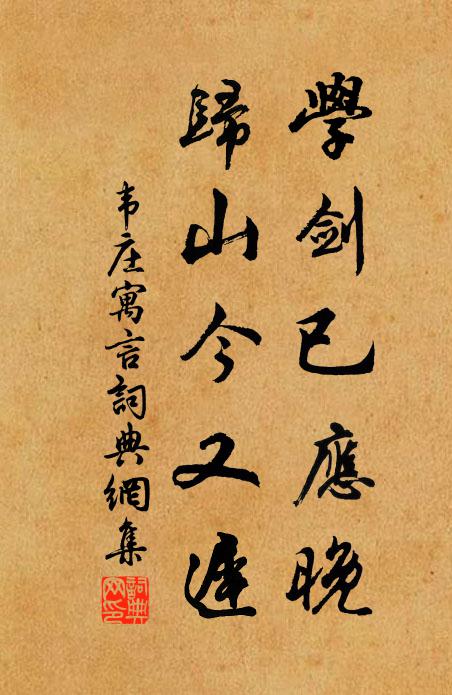 學劍已應晚
歸山今又遲
韦庄寓言詞典網集
詞典
网印